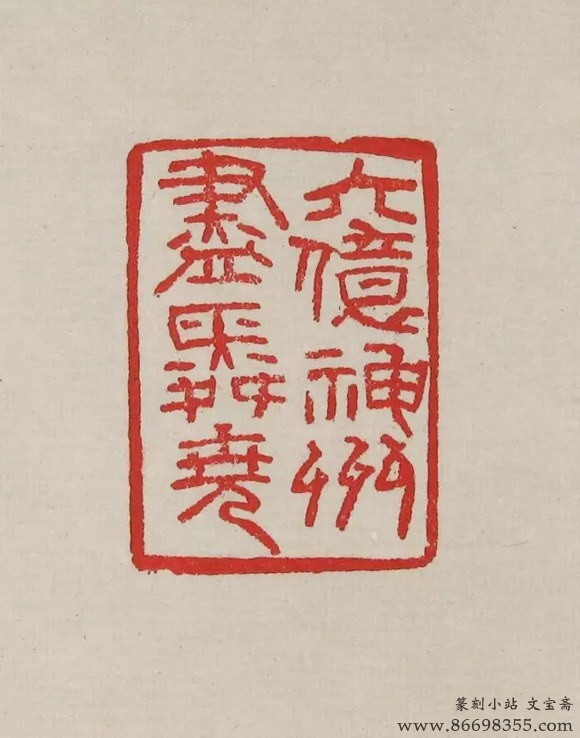 六億神州
盡舜堯
篆刻小站 文宝斋
www.86698355.com